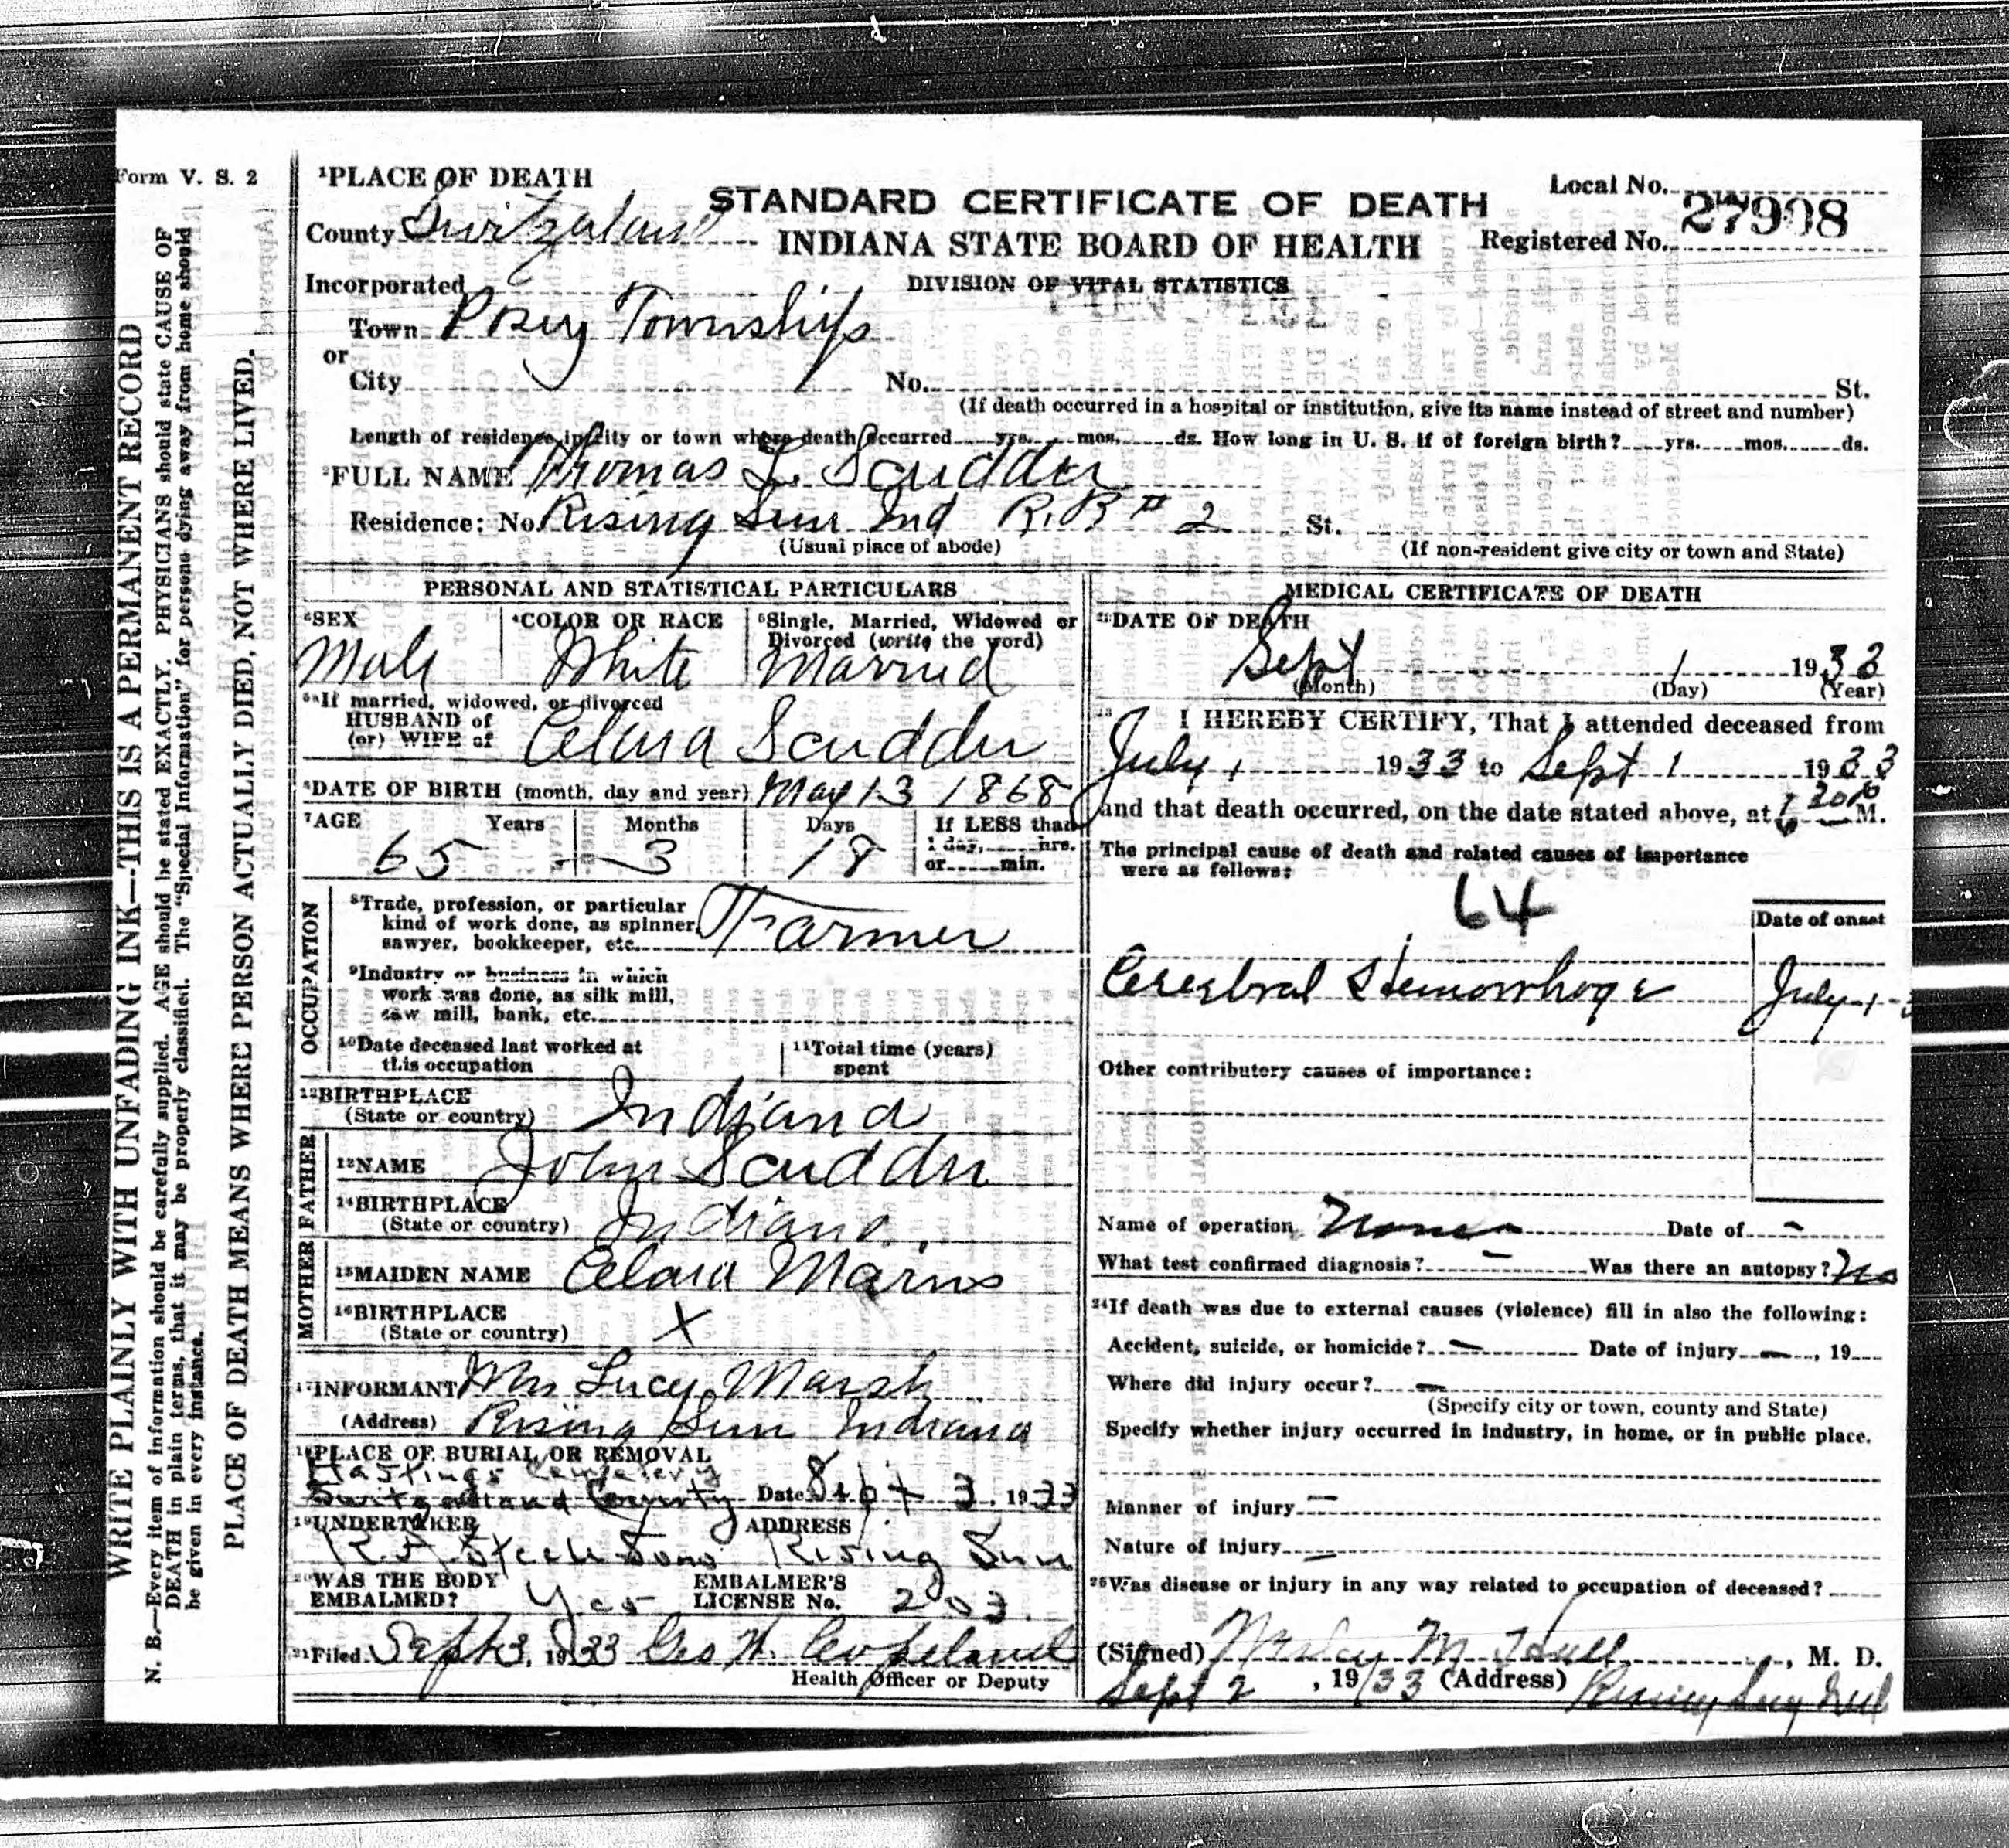 Form V. S. 2
WRITE PLAINLY WITH UNFADING INK—THIS IS A PERMANENT RECORD
N. B.—Every item of information should be carefully supplied. AGE should be stated EXACTLY. PHYSICIANS should state CAUSE OF
DEATH in plain terms, that it may be properly classified. The "Special Information" for persons dying away from home should
be given in every instance.
PLACE OF DEATH MEANS WHERE PERSON ACTUALLY DIED, NOT WHERE LIVED.
1PLACE OF DEATH
County Switzaland
STANDARD CERTIFICATE OF DEATH
INDIANA STATE BOARD OF HEALTH
DIVISION OF VITAL STATISTICS
Local No.
Registered No. 27908
Incorporated
Town Posey Township
or
City No. St.
(If death occurred in a hospital or institution, give its name instead of street and number)
Length of residence in city or town where death occurred yrs. mos. ds. How long in U. S. if of foreign birth? yrs. mos. ds.
2FULL NAME Thomas L. Scudder
Residence: No. Rising Sun Ind R.R # 2 St.
(Usual place of abode) (If non-resident give city or town and State)
PERSONAL AND STATISTICAL PARTICULARS
3SEX 4COLOR OR RACE 5Single, Married, Widowed or
Divorced (write the word)
Male White Married
5aIf married, widowed, or divorced
HUSBAND of
(or) WIFE of Clara Scudder
6DATE OF BIRTH (month, day and year) May 13 1868
7AGE Years Months Days If LESS than
1 day, hrs.
or min.
65 3 18
OCCUPATION
8Trade, profession, or particular
kind of work done, as spinner,
sawyer, bookkeeper, etc. Farmer
9Industry or business in which
work was done, as silk mill,
saw mill, bank, etc.
10Date deceased last worked at
this occupation
11Total time (years)
spent
12BIRTHPLACE
(State or country) Indiana
FATHER
13NAME John Scudder
14BIRTHPLACE
(State or country) Indiana
MOTHER
15MAIDEN NAME Clara
16BIRTHPLACE
(State or country) X
17INFORMANT Mrs Lucy Marsh
(Address) Rising Sun Indiana
18PLACE OF BURIAL OR REMOVAL
Hastings Cemetery
Switzerland County Date Sept 3, 1933
19UNDERTAKER ADDRESS
Sons Rising Sun
20WAS THE BODY
EMBALMED? Yes
EMBALMER'S
LICENSE No. 203
21Filed Sept 3, 1933 Geo W. Copeland
Health Officer or Deputy
MEDICAL CERTIFICATE OF DEATH
22DATE OF DEATH
Sept 1 1933
(Month) (Day) (Year)
23 I HEREBY CERTIFY, That I attended deceased from
July 1 1933 to Sept 1 1933
and that death occurred, on the date stated above, at M.
The principal cause of death and related causes of importance
were as follows:
64
Date of onset
Cerebral Hemorrhage July 1
Other contributory causes of importance:
Name of operation None Date of -
What test confirmed diagnosis? - Was there an autopsy? No
24If death was due to external causes (violence) fill in also the following:
Accident, suicide, or homicide? - Date of injury -, 19
Where did injury occur? -
(Specify city or town, county and State)
Specify whether injury occurred in industry, in home, or in public place.
Manner of injury -
Nature of injury -
25Was disease or injury in any way related to occupation of deceased?
(Signed) M. , M. D.
Sept 2, 1933 (Address) Rising Sun Ind